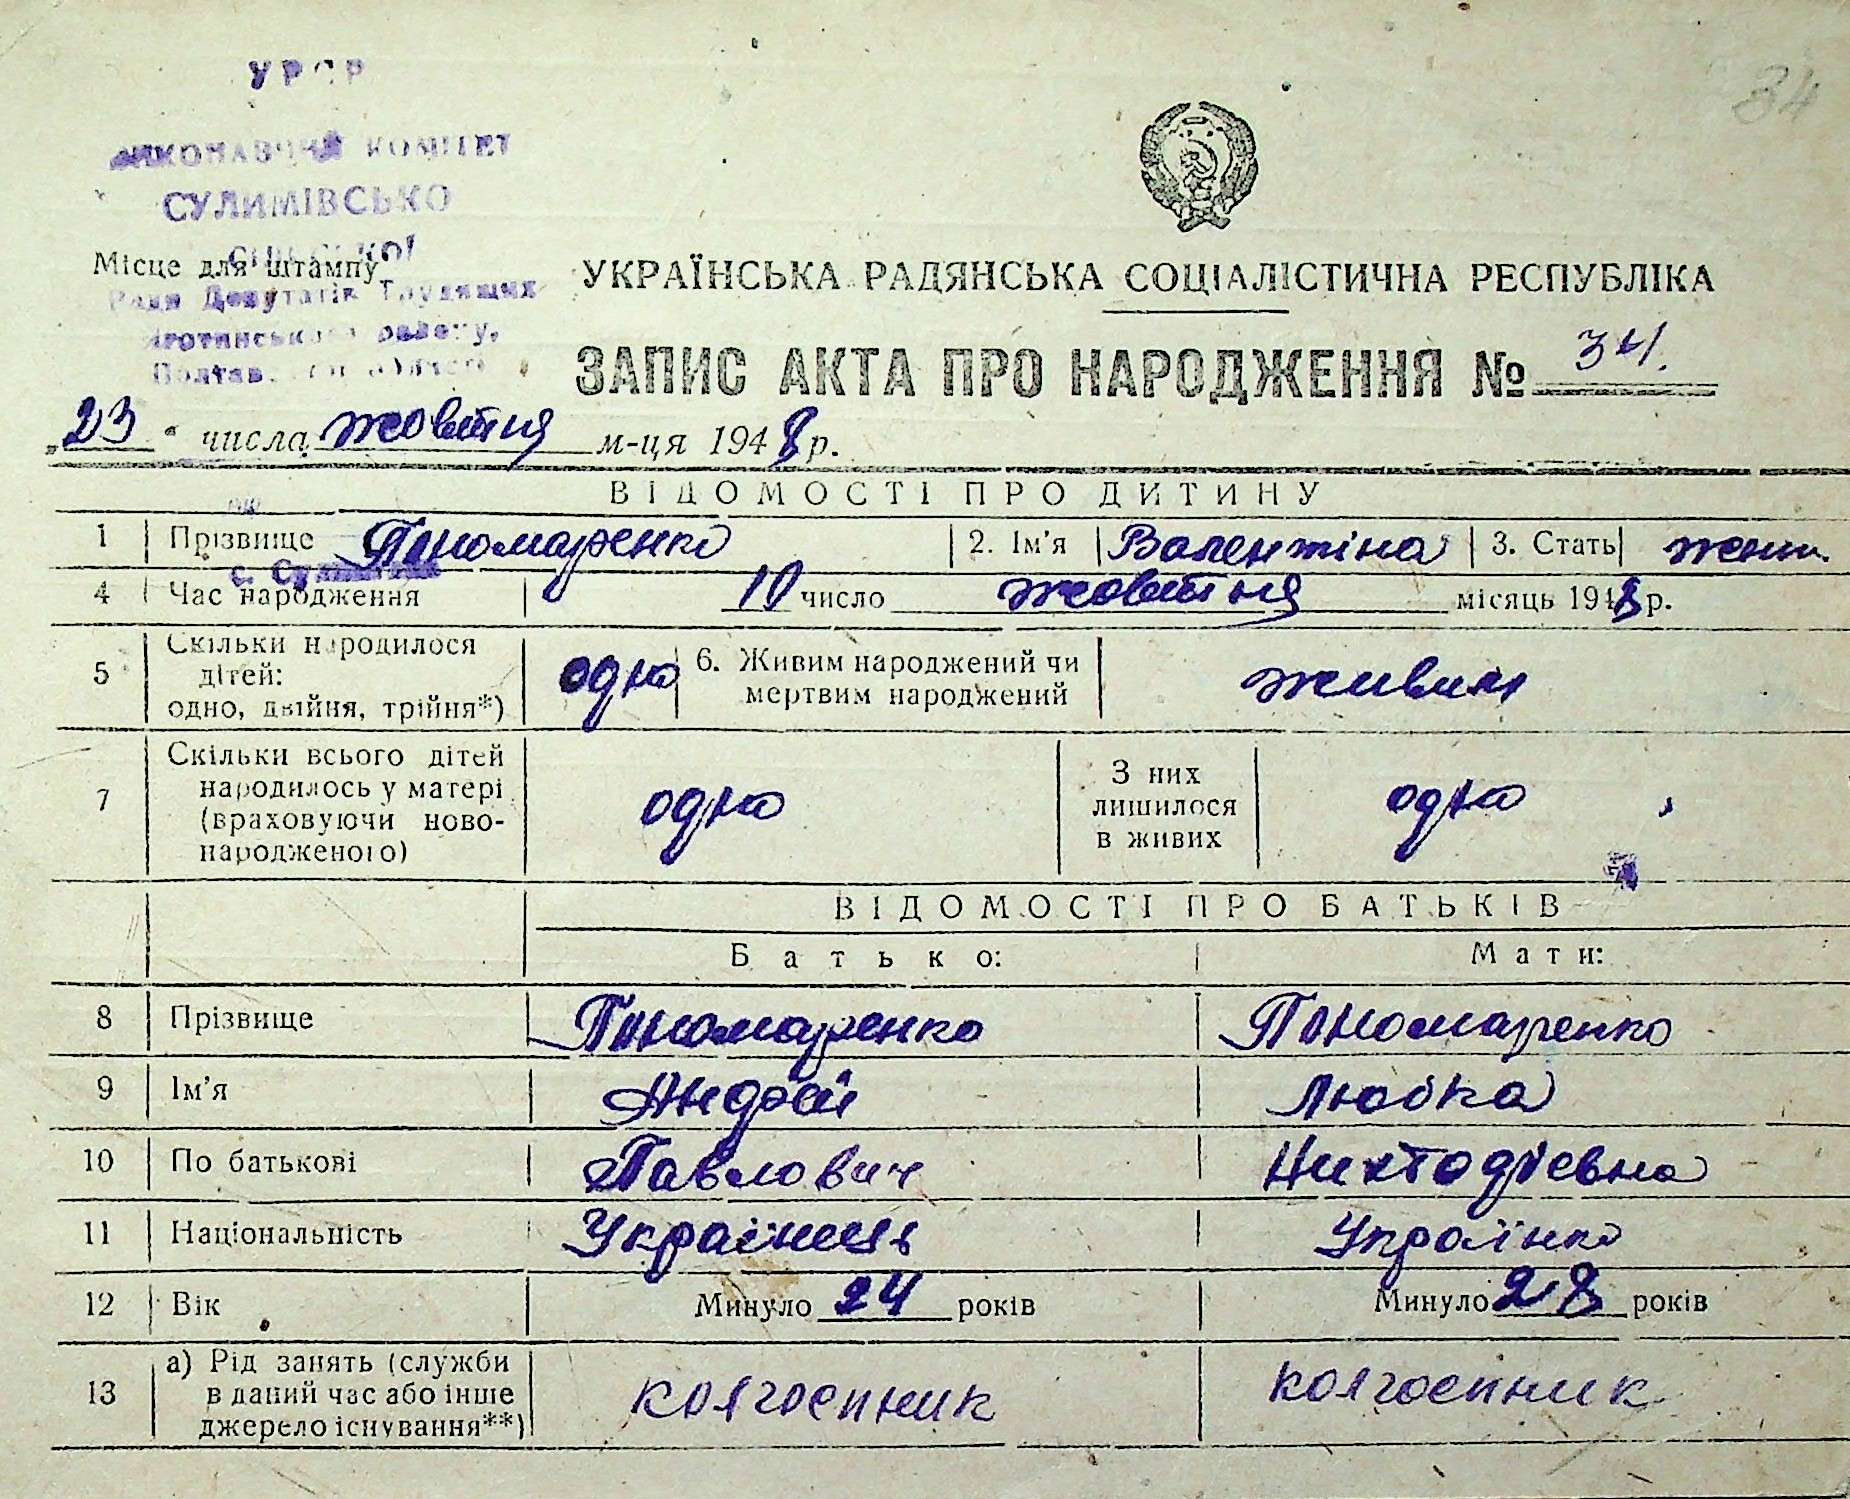 УРСР
34
ВИКОНАВЧИЙ КОМІТЕТ
СУЛИМІВСЬКО
Місце для штампу
Ради Депутатів Трудящих
Яготинського району,
УКРАЇНСЬКА РАДЯНСЬКА СОЦІАЛІСТИЧНА РЕСПУБЛІКА
ЗАПИС АКТА ПРО НАРОДЖЕННЯ № 34.
„23" числа жовтня м-ця 1948 р.
ВІДОМОСТІ ПРО ДИТИНУ
1 Прізвище Пономаренко 2. Ім'я Валентіна 3. Стать жінч.
4 Час народження 10 число жовтня місяць 1948 р.
5 Скільки народилося
дітей:
одно, двійня, трійня*) одно 6. Живим народжений чи
мертвим народжений живим
7 Скільки всього дітей
народилось у матері
(враховуючи ново-
народженого) одно З них
лишилося
в живих одно
ВІДОМОСТІ ПРО БАТЬКІВ
Батько: Мати:
8 Прізвище Пономаренко Пономаренко
9 Ім'я Андрій Любка
10 По батькові Павлович
11 Національність Українець Українка
12 Вік Минуло 24 років Минуло 28 років
13 а) Рід занять (служби
в даний час або інше
джерело існування**) колгоспник колгоспник